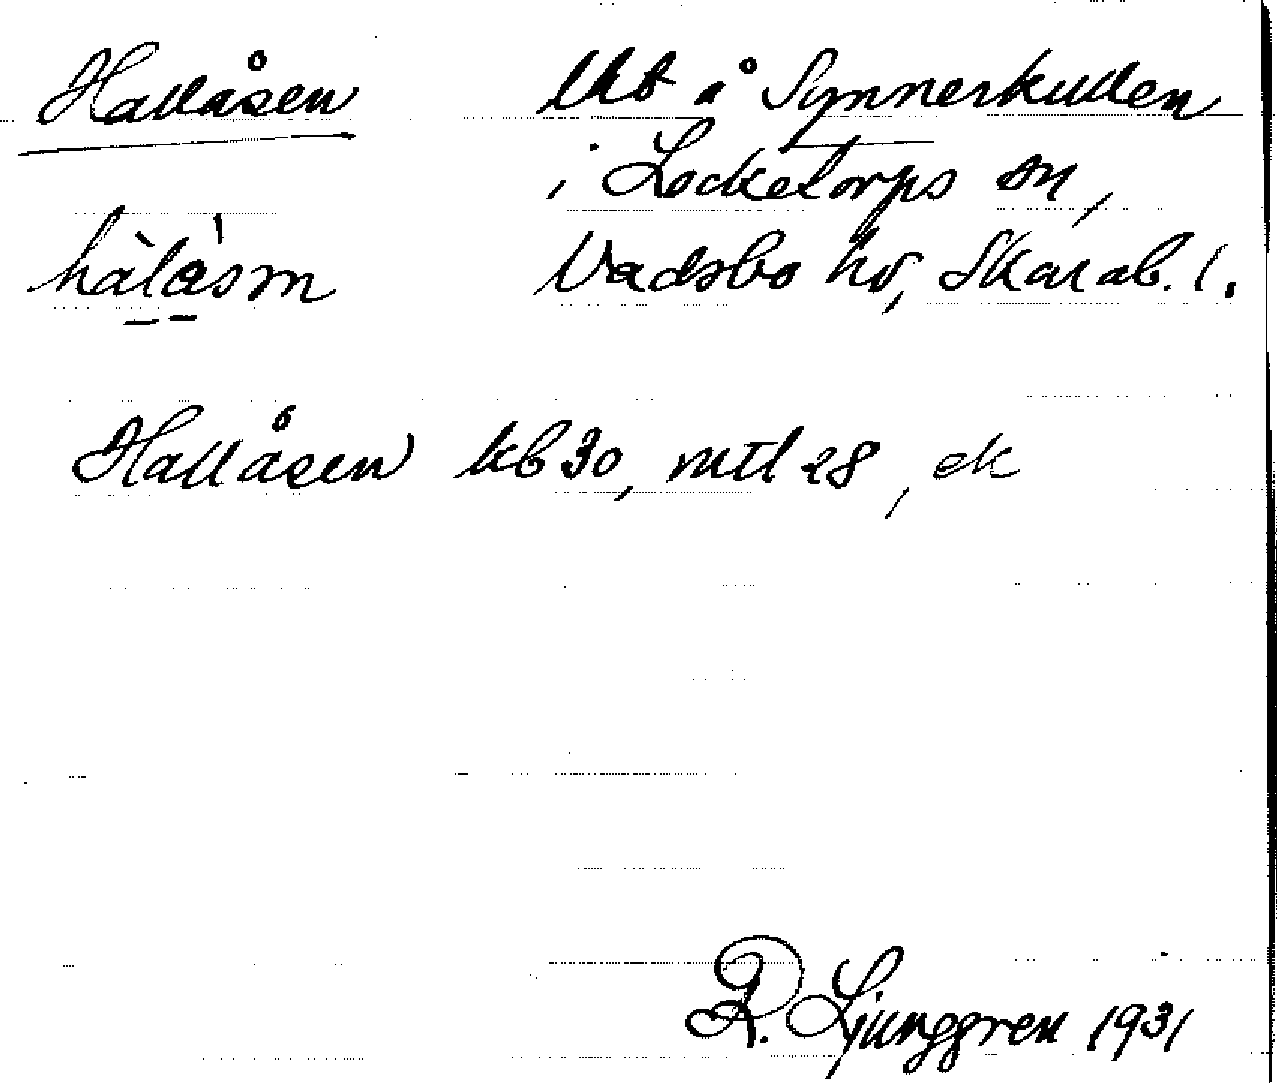 Hallåsen
Lht å Synnerkullen
i Locketorps sn,
hàlåsn
Vadsbo hd, Skarab. l.
Hallåsen kb 30, mtl 28, ek
R. Ljunggren 1931